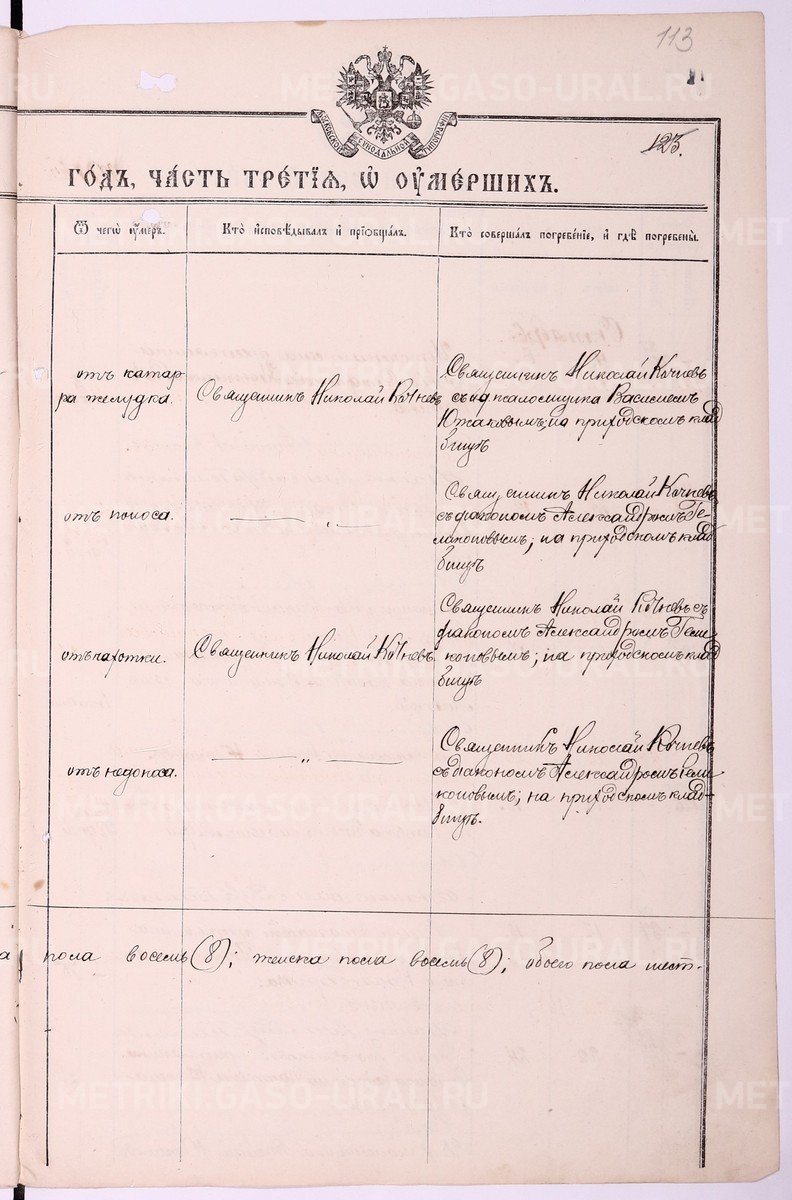 113
123.
МОСКОВСКОЙ СѴНОДАЛЬНОЙ ТИПОГРАФІИ
ГО́ДЪ, ЧА́СТЬ ТРЕ́ТІѦ, Ѡ҆ ОУ҆МЕ́РШИХЪ.
Ѿ чегѡ̀ ᲂу҆́меръ.
Кто̀ и҆сповѣ́дывалъ и҆ прїѡбща́лъ.
Кто̀ соверша́лъ погребе́нїе, и҆ гдѣ̀ погребе́ны.
отъ катар-
ра желудка.
Священникъ Николай Кочневъ
Священникъ Николай Кочневъ
съ и д псаломщика Василіемъ
Южаковымъ; на приходскомъ клад
бищѣ
отъ поноса.
— „ —
Священникъ Николай Кочневъ
съ діакономъ Александромъ Ге-
ликоновымъ; на приходскомъ клад
бищѣ
отъ чахотки.
Священникъ Николай Кочневъ.
Священникъ Николай Кочневъ съ
діакономъ Александромъ Гели
коновымъ; на приходскомъ клад
бищѣ
отъ недоноса.
— „ —
Священникъ Николай Кочневъ
съ діакономъ Александромъ Гели
коновымъ; на приходскомъ клад-
бищѣ.
а пола восемь (8); женска пола восемь (8); обоего пола шест-
METRIKI.GASO-URAL.RU